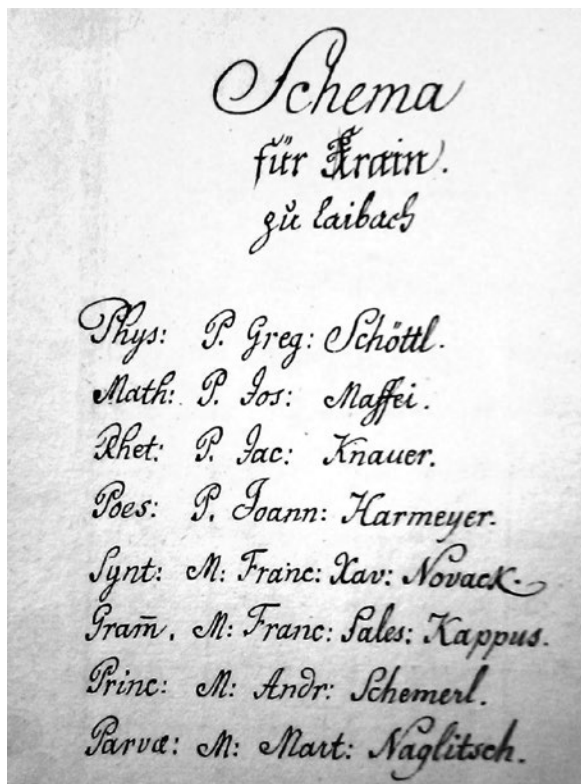 Schema
für Krain.
zu Laibach
Phys: P. Greg: Schöttl.
Math: P. Jos: Maffei.
Rhet: P. Jac: Knauer.
Poes: P. Joann: Harmeyer.
Synt: M: Franc: Xav: Novack.
Gram̄. M: Franc: Sales: Kappus.
Princ: M: Andr: Schemerl.
Parvæ: M: Mart: Naglitsch.